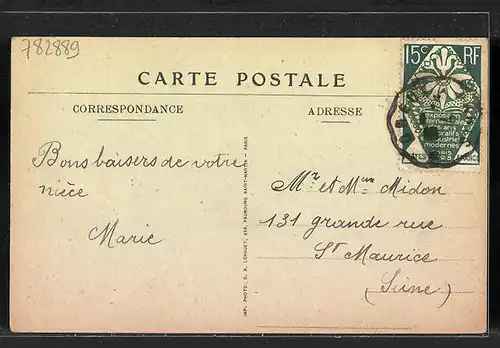 782889
15c RF
CARTE POSTALE
CORRESPONDANCE
ADRESSE
exposition
internationale
arts
décoratifs
industriels
modernes
Paris
1925
POSTES FRANCE
Bons baisers de votre
nièce
Marie
Mr et Mme Midon
131 grande rue
St Maurice
(Seine)
IMP. PHOTO. D. A. LONGUET, 250, FAUBOURG SAINT-MARTIN - PARIS